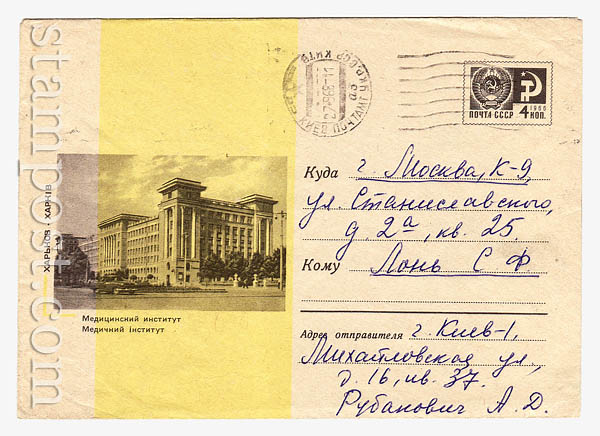 stampost.com
КИЕВ ПОЧТАМТ
ПОЧТА СССР
1966
4 КОП.
Куда г Москва, К-9,
ул. Станиславского,
д. 2а, кв. 25
Кому Лонь С Ф
ХАРЬКОВ · ХАРКІВ
Медицинский институт
Медичний інститут
Адрес отправителя г. Киев-1,
Михайловская ул,
д. 16, кв. 37.
Рубанович А. Д.